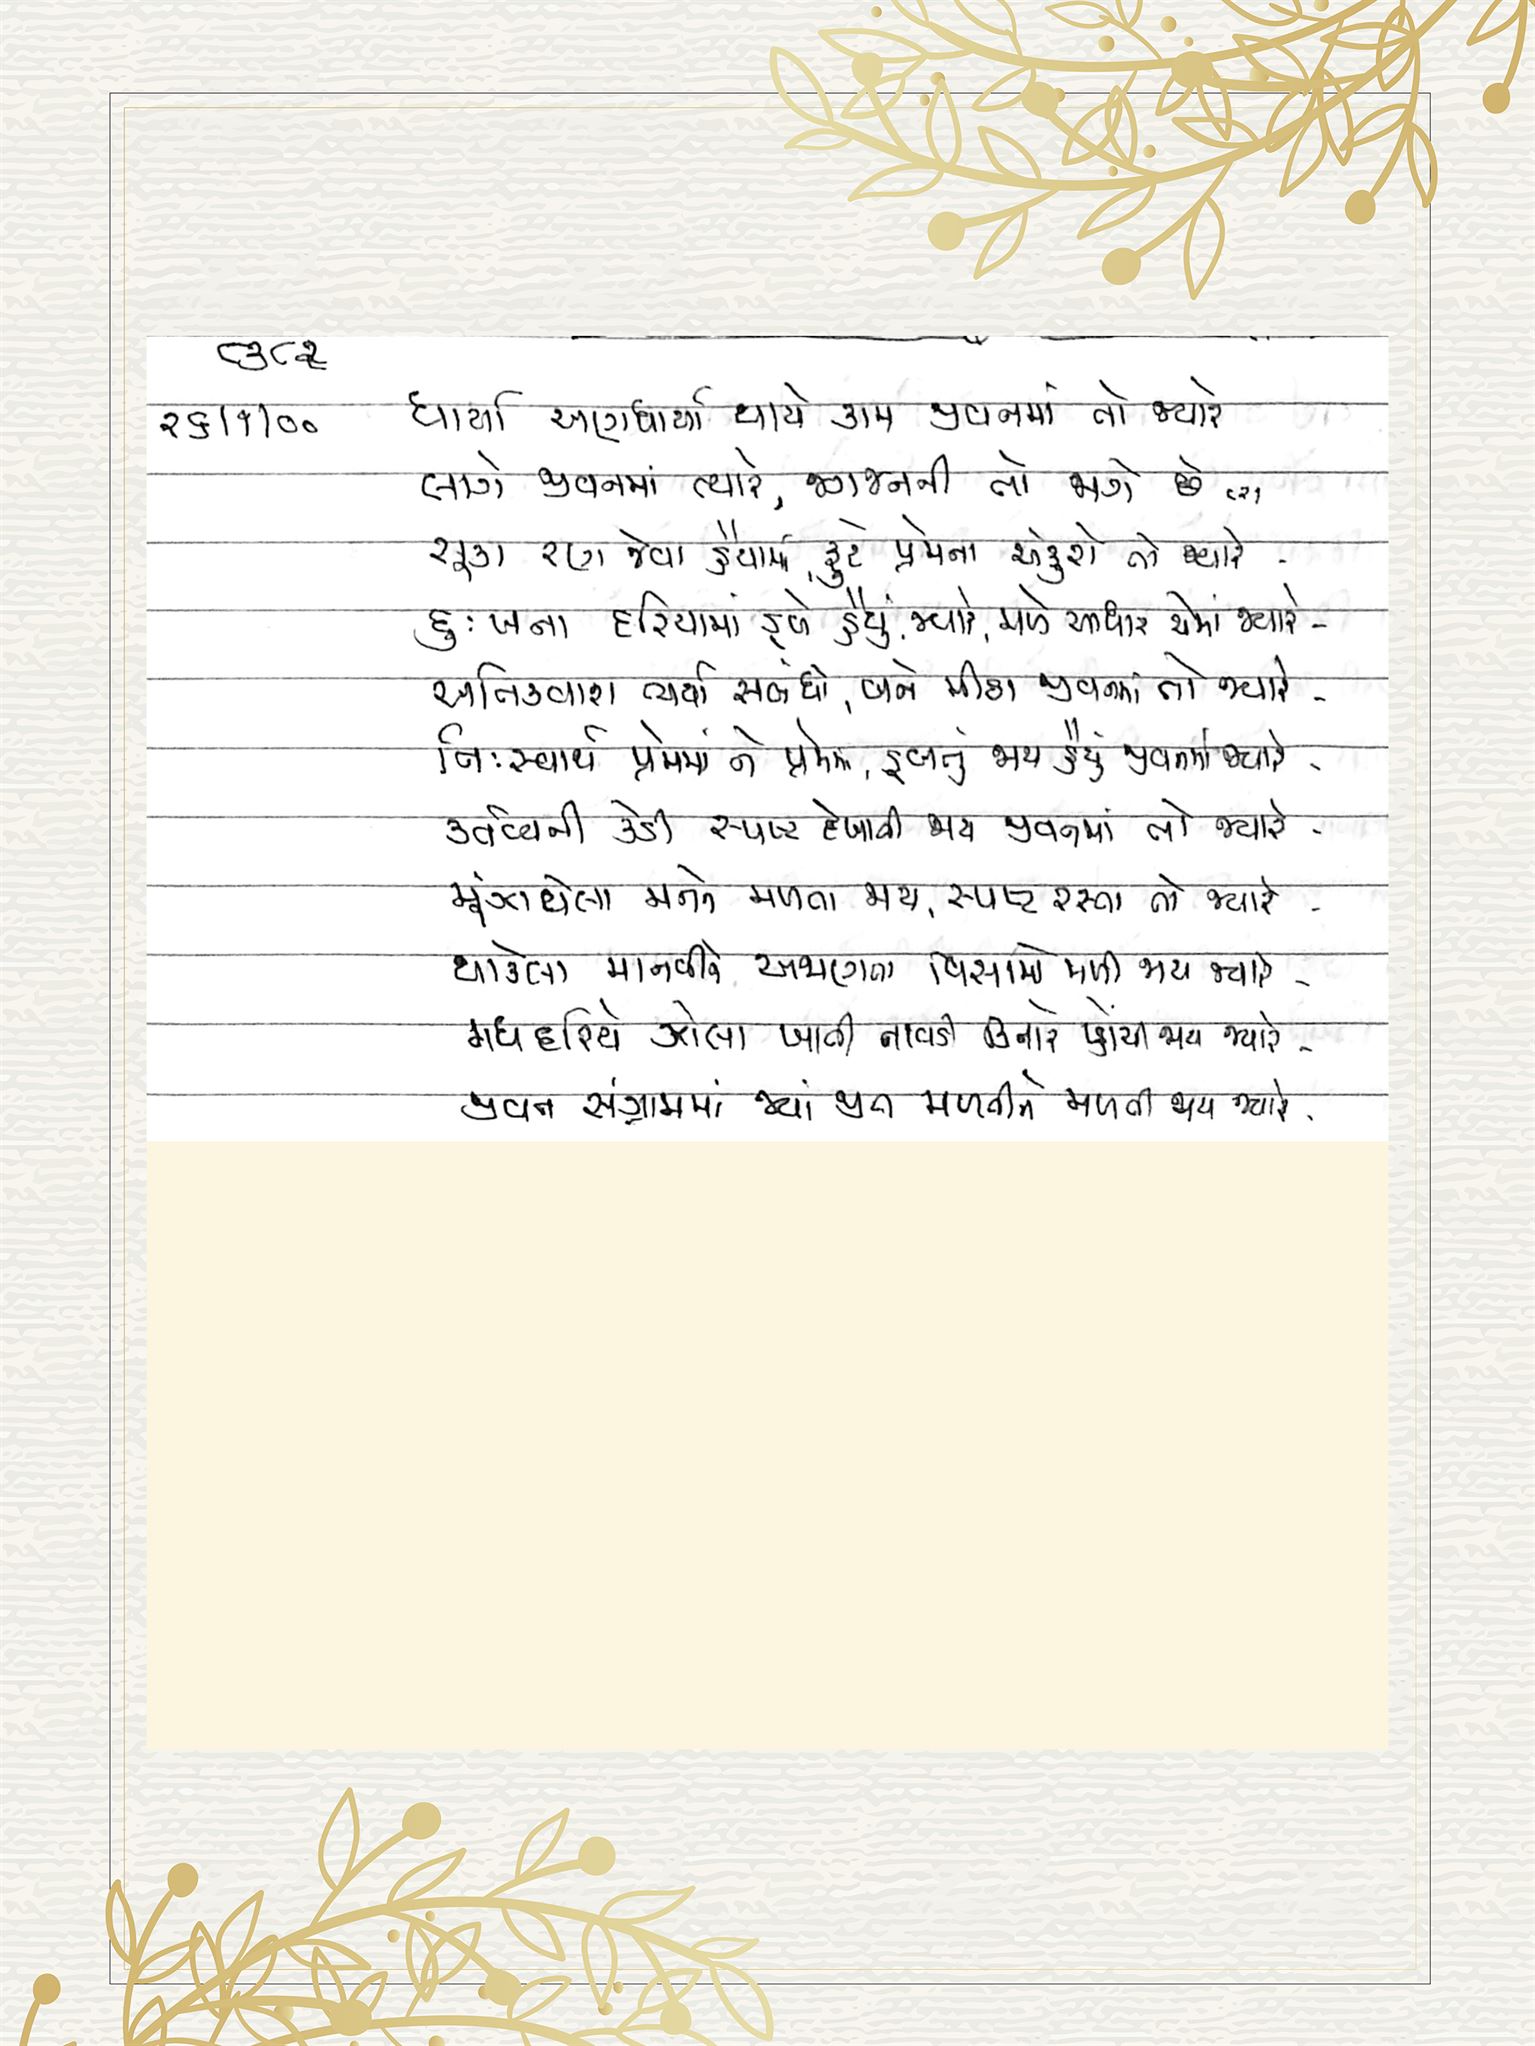 ૮૩૮૨
૨૬/૧/૦૦ ધાર્યા અણધાર્યા થાયે કામ જીવનમાં તો જ્યારે
લાગે જીવનમાં ત્યારે, જગજનની તો જાગે છે (૨)
સૂકા રણ જેવા હૈયામાં, ફુટે પ્રેમના અંકુશો તો જ્યારે -
દુઃખના દરિયામાં ડૂબે હૈયું જ્યારે, મળે આધાર એમાં જ્યારે -
અનિકવાશ ત્યર્યા સબંધો, બને મીઠા જીવનમાં તો જ્યારે -
નિઃસ્વાર્થ પ્રેમમાં ને પ્રેમમાં, ડૂબતું જાય હૈયું જીવનમાં જ્યારે -
કર્તવ્યની કેડી સ્પષ્ટ દેખાતી જાય જીવનમાં તો જ્યારે -
મૂંઝાયેલા મનને મળતા જાય, સ્પષ્ટ રસ્તા તો જ્યારે -
થાકેલા માનવીને અજાણતા વિસામો મળી જાય જ્યારે -
મધદરિયે ઝોલા ખાતી નાવડી કિનારે પ્હોંચી જાય જ્યારે -
જીવન સંગ્રામમાં જ્યાં જીત મળતીને મળતી જાય જ્યારે -